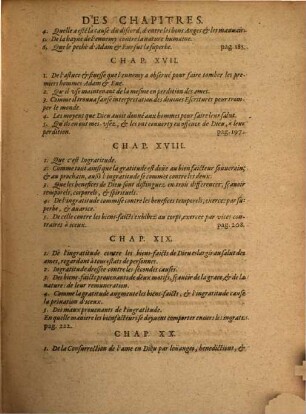 DES CHAPITRES.
4. Quelle a esté la cause du discord, d'entre les bons Anges & les mauuais.
5. De la hayne de l'ennemy contre la nature humaine.
6. Que le peché d'Adam & Eue fut la superbe. pag. 185.
CHAP. XVII.
1. De l'astuce & finesse que l'ennemy a obserué pour faire tomber les premiers hommes Adam & Eue.
2. Qu'il vse maintenant de la mesme en perdition des ames.
3. Comme il tenu a fausse interpretation des diuines Escritures pour tromper le monde.
4. Les moyens que Dieu auoit donné aux hommes pour faire leur salut.
5. Qu'ils en ont mes-vsez, & les ont conuerty en offence de Dieu, & leur perdition. pag. 197.
CHAP. XVIII.
1. Que c'est Ingratitude.
2. Comme tout ainsi que la gratitude est deüe au bien faicteur souuerain; & au prochain, aussi l'ingratitude se commet contre les deux.
3. Que les benefices de Dieu sont distinguez en trois differences; sçauoir temporels, corporels, & spirituels.
4. De l'ingratitude commise contre les benefices temporels, exercée par superbe, & auarice.
5. De celle contre les bien-faicts exhibez au corps, exercée par vices contraires à iceux. pag. 208.
CHAP. XIX.
1. De l'ingratitude contre les bien-faicts de Dieu eslargis au salut des ames, regardant à tous estats de personnes.
2. Ingratitude adressée contre les secondes causes.
3. Des bien-faicts prouenants de deux motifs, sçauoir de la grace, & de la nature: de leur remuneration.
4. Comme la gratitude augmente les bien-faicts, & l'ingratitude cause la priuation d'iceux.
5. Des maux prouenants de l'ingratitude.
En quelle maniere les bien-facteurs se doyuent comporter enuers les ingrats. pag. 222.
CHAP. XX.
1. De la Consurrection de l'ame en Dieu par loüanges, benedictions, &